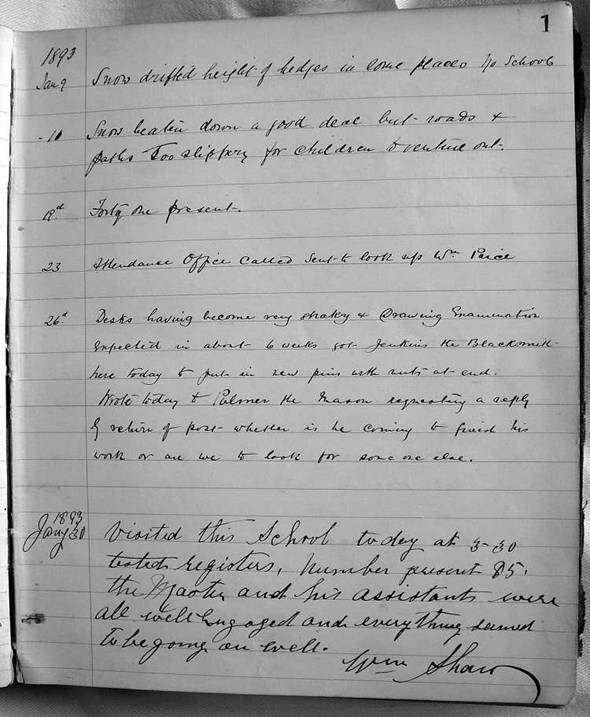 1
1893
Jan 9 Snow drifted height of hedges in some places No School
" 10 Snow beaten down a good deal but roads &
paths too slippery for children to venture out.
Forty one present.
23 Attendance Office Called Sent to look up Wm Price
26th Desks having become very shaky & Drawing Examination
expected in about 6 weeks got Jenkins the Blacksmith
here today to put in new pins with nuts at end.
Wrote today to Palmer the Mason requesting a reply
by return of post whether is he coming to finish his
work or are we to look for some one else.
1893
Jany 30 Visited this School today at 3-30
tested registers, Number present 85.
the Master and his assistants were
all well Engaged and everything seemed
to be going on well.
Wm Shaw